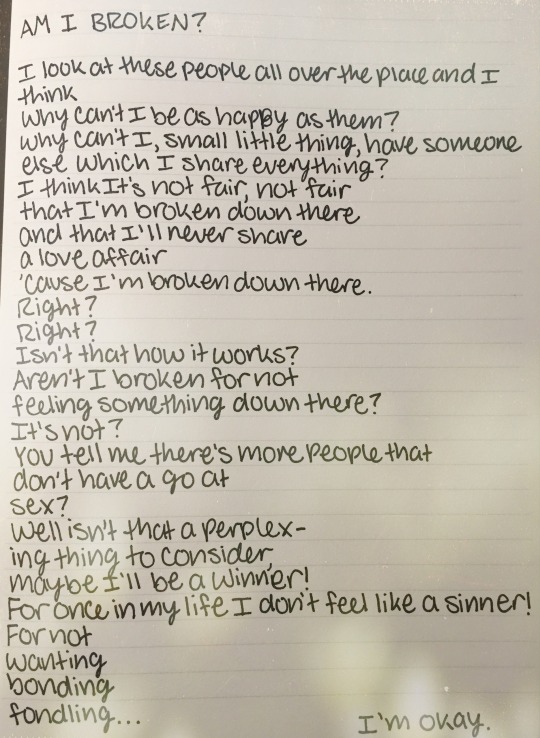 AM I BROKEN?
I look at these people all over the place and I
think
why can't I be as happy as them?
why can't I, small little thing, have someone
else which I share everything?
I think It's not fair, not fair
that I'm broken down there
and that I'll never share
a love affair
'cause I'm broken down there.
Right?
Right?
Isn't that how it works?
Aren't I broken for not
feeling something down there?
It's not?
You tell me there's more people that
don't have a go at
sex?
Well isn't that a perplex-
ing thing to consider,
maybe I'll be a winner!
For once in my life I don't feel like a sinner!
For not
wanting
bonding
fondling...
I'm okay.